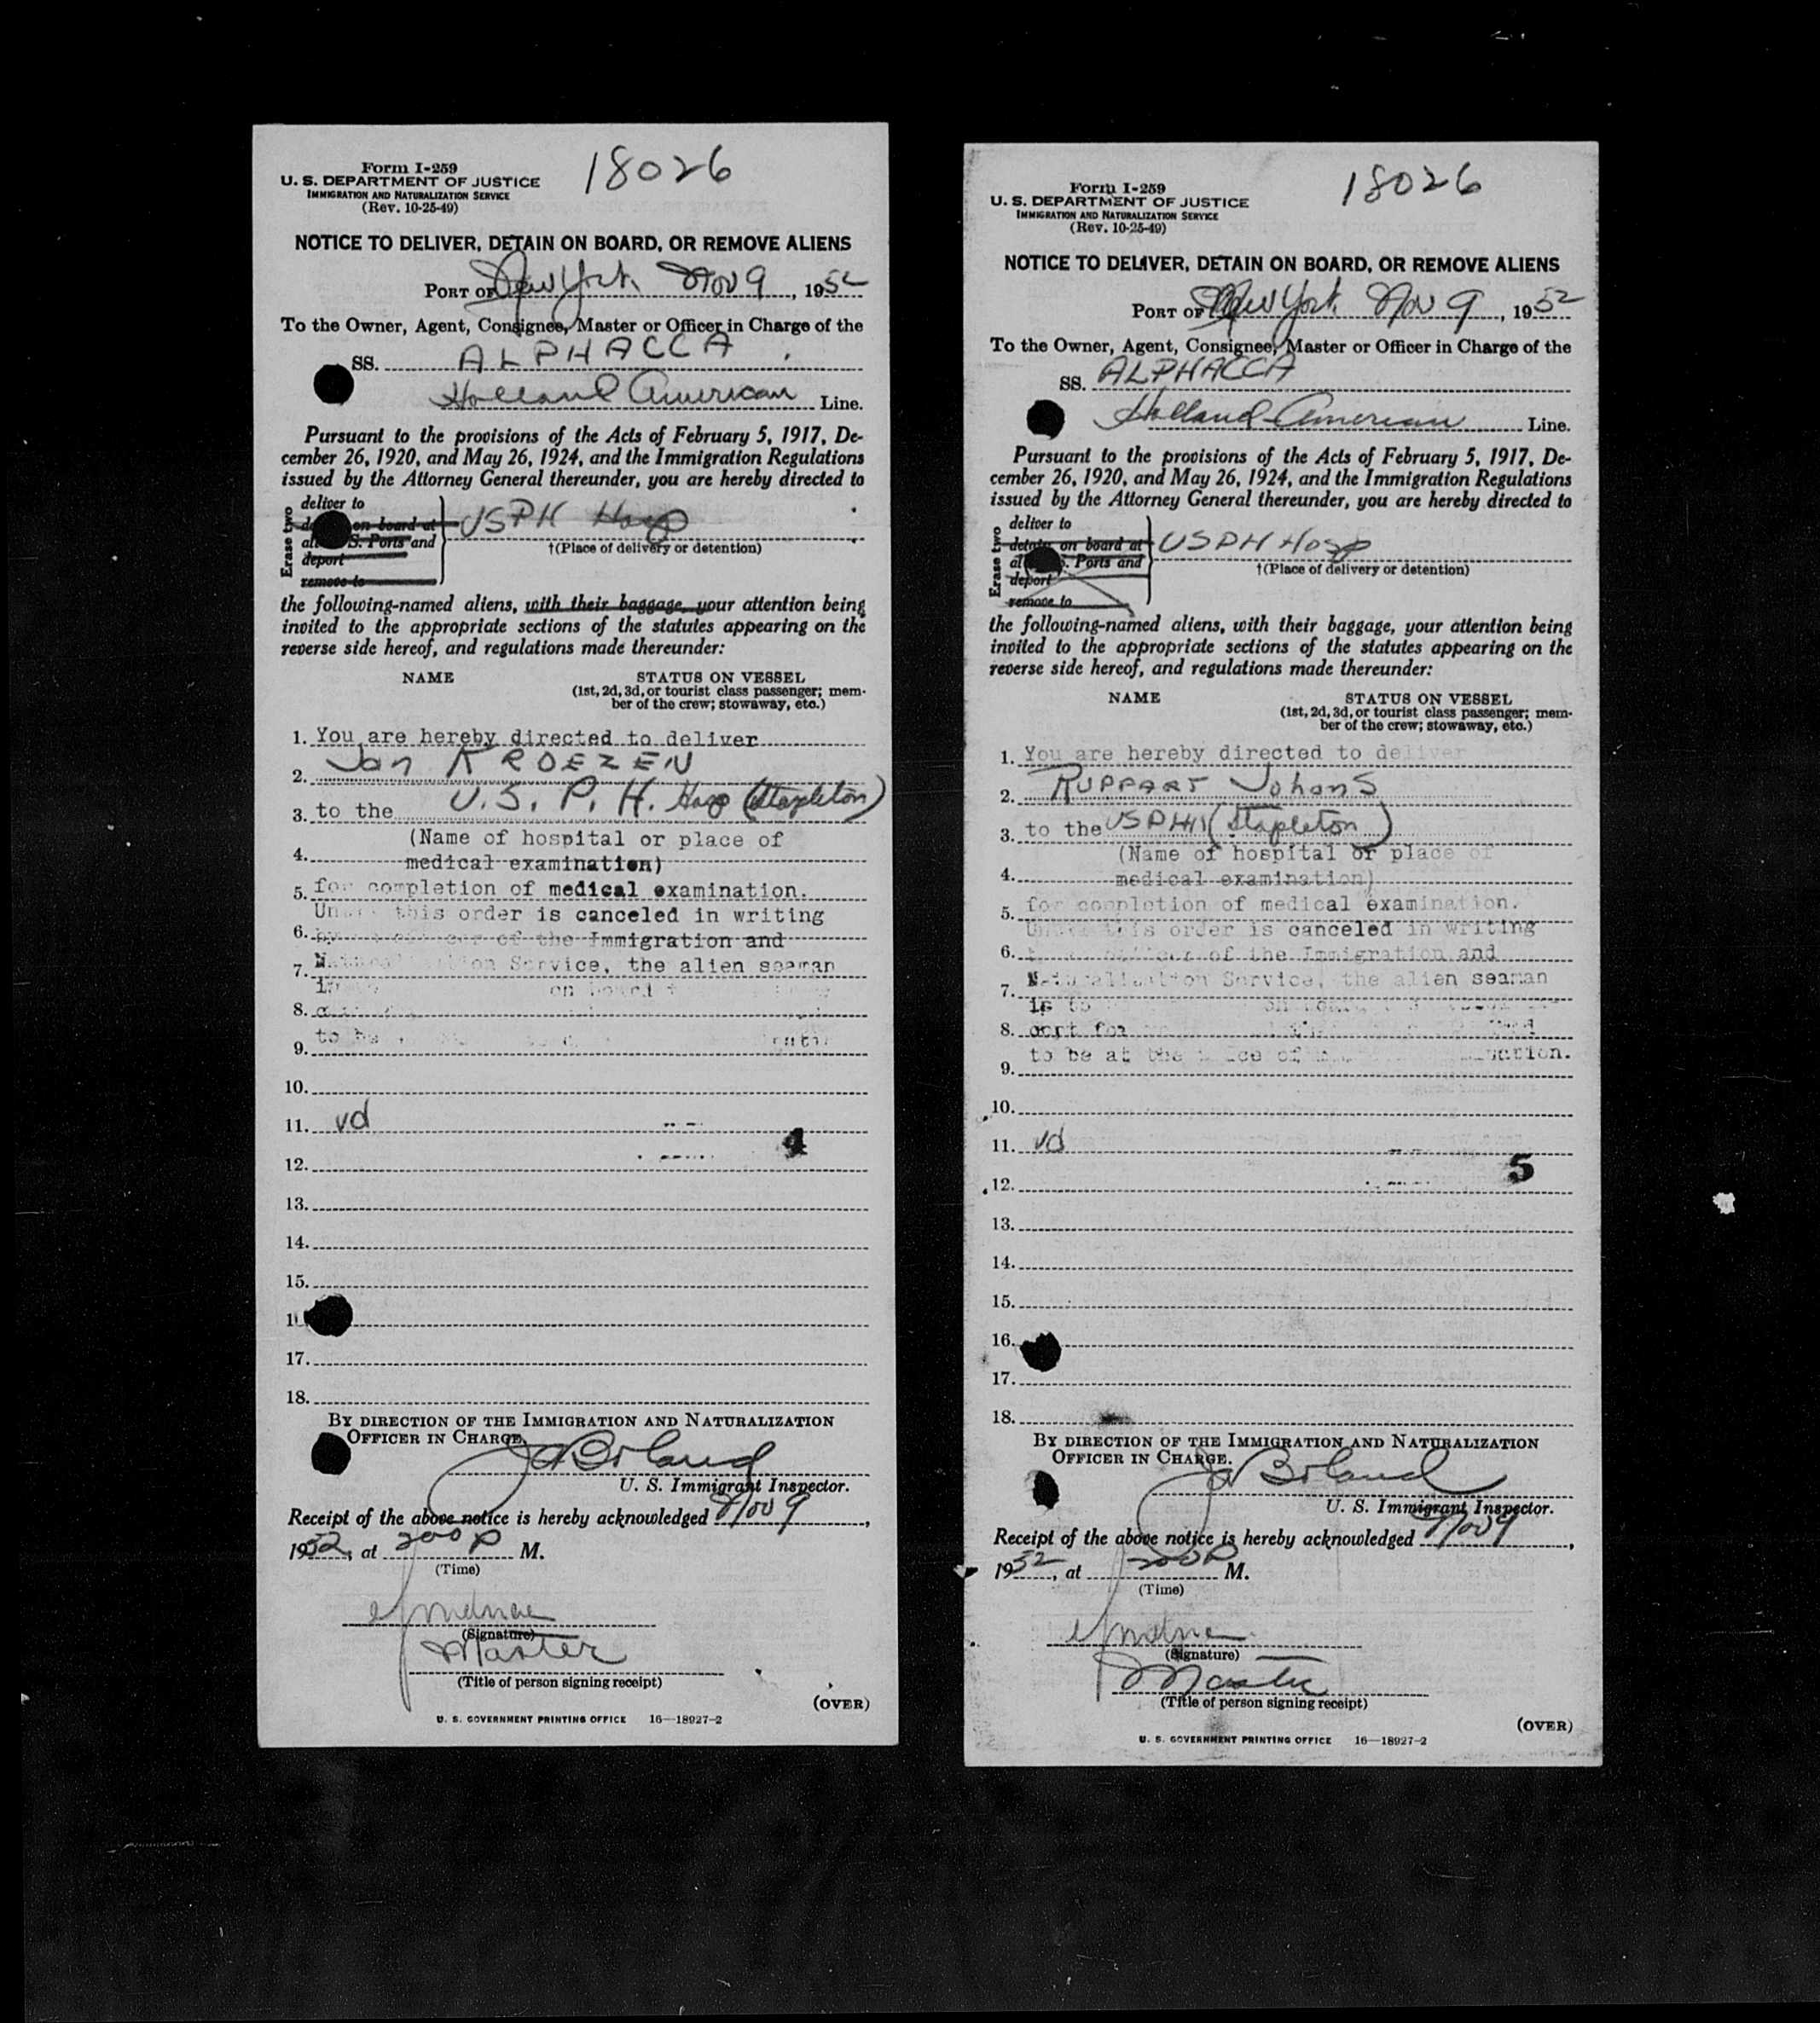 Form I-259
U. S. DEPARTMENT OF JUSTICE
IMMIGRATION AND NATURALIZATION SERVICE
(Rev. 10-25-49)
18026
NOTICE TO DELIVER, DETAIN ON BOARD, OR REMOVE ALIENS
PORT OF New York Nov 9, 1952
To the Owner, Agent, Consignee, Master or Officer in Charge of the
SS. ALPHACCA
Holland American Line.
Pursuant to the provisions of the Acts of February 5, 1917, De-
cember 26, 1920, and May 26, 1924, and the Immigration Regulations
issued by the Attorney General thereunder, you are hereby directed to
Erase two
deliver to
on board at USPH Hosp
S. Ports and †(Place of delivery or detention)
deport
remove to
the following-named aliens, with their baggage, your attention being
invited to the appropriate sections of the statutes appearing on the
reverse side hereof, and regulations made thereunder:
NAME STATUS ON VESSEL
(1st, 2d, 3d, or tourist class passenger; mem-
ber of the crew; stowaway, etc.)
1. You are hereby directed to deliver
2. Jan KROEZEN
3. to the U.S. P. H. Hosp (Stapleton)
(Name of hospital or place of
4. medical examination)
5. for completion of medical examination.
this order is canceled in writing
6. of the Immigration and
7. Service, the alien seaman
on board
8.
to be
9.
10.
11. vd
4
12.
13.
14.
15.
17.
18.
BY DIRECTION OF THE IMMIGRATION AND NATURALIZATION
OFFICER IN CHARGE.
J A Boland
U. S. Immigrant Inspector.
Receipt of the above notice is hereby acknowledged Nov 9,
1952, at 200 P M.
(Time)
(Signature)
Master
(Title of person signing receipt)
(OVER)
U. S. GOVERNMENT PRINTING OFFICE 16—18927-2
Form I-259
U. S. DEPARTMENT OF JUSTICE
IMMIGRATION AND NATURALIZATION SERVICE
(Rev. 10-25-49)
18026
NOTICE TO DELIVER, DETAIN ON BOARD, OR REMOVE ALIENS
PORT OF New York Nov 9, 1952
To the Owner, Agent, Consignee, Master or Officer in Charge of the
SS. ALPHACCA
Holland-American Line.
Pursuant to the provisions of the Acts of February 5, 1917, De-
cember 26, 1920, and May 26, 1924, and the Immigration Regulations
issued by the Attorney General thereunder, you are hereby directed to
Erase two
deliver to
detain on board at USPH Hosp
Ports and †(Place of delivery or detention)
deport
remove to
the following-named aliens, with their baggage, your attention being
invited to the appropriate sections of the statutes appearing on the
reverse side hereof, and regulations made thereunder:
NAME STATUS ON VESSEL
(1st, 2d, 3d, or tourist class passenger; mem-
ber of the crew; stowaway, etc.)
1. You are hereby directed to deliver
2. RUPPART Johans
3. to the USPHH (Stapleton)
(Name of hospital or place of
4. medical examination)
5. for completion of medical examination.
this order is canceled in writing
6. officer of the Immigration and
7. Naturalization Service, the alien seaman
is to
8. cept for
to be at the place of
9.
10.
11. vd
5
12.
13.
14.
15.
16.
17.
18.
BY DIRECTION OF THE IMMIGRATION AND NATURALIZATION
OFFICER IN CHARGE.
J A Boland
U. S. Immigrant Inspector.
Receipt of the above notice is hereby acknowledged Nov 9,
1952, at 200 P M.
(Time)
(Signature)
Master
(Title of person signing receipt)
(OVER)
U. S. GOVERNMENT PRINTING OFFICE 16—18927-2